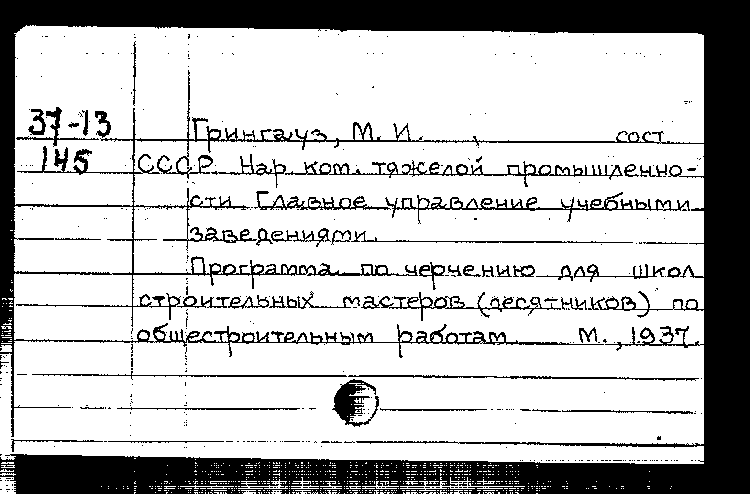 37-13
145
Грингауз, М. И. , сост.
СССР. Нар. ком. тяжелой промышленно-
сти. Главное управление учебными
заведениями.
Программа по черчению для школ
строительных мастеров (десятников) по
общестроительным работам М., 1937.